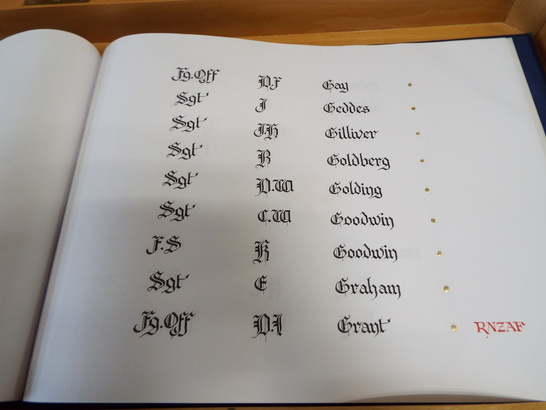 Fg.Off D.F Gay
Sgt J Geddes
Sgt J.H Gilliver
Sgt R Goldberg
Sgt D.W Golding
Sgt C.W Goodwin
F.S K Goodwin
Sgt E Graham
Fg.Off D.I Grant RNZAF